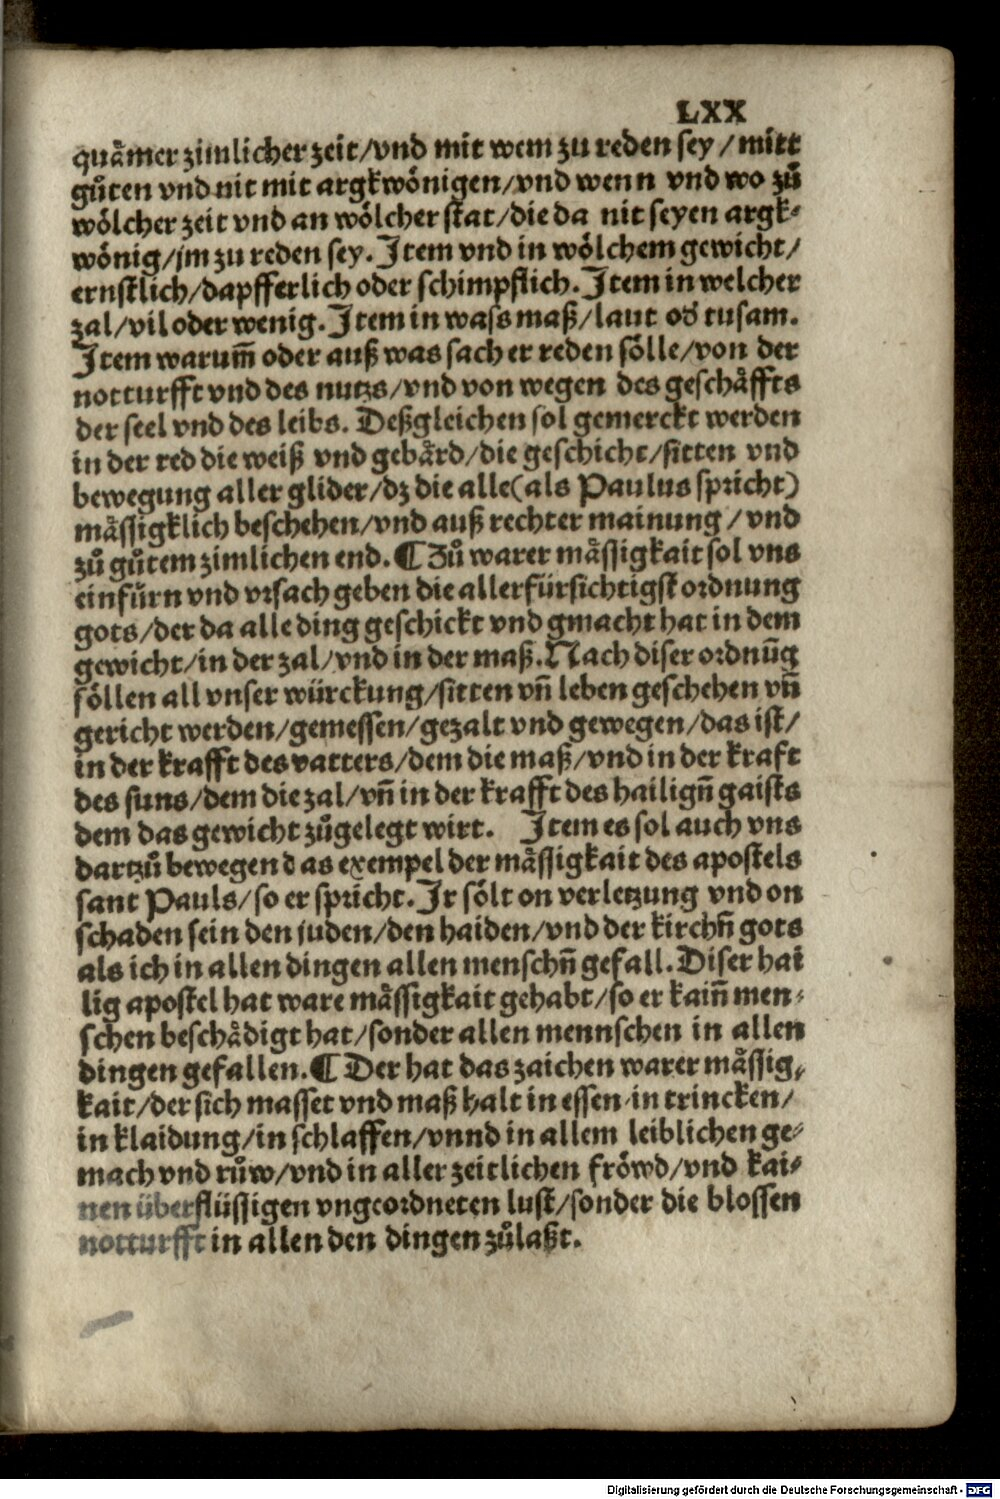 LXX
quämer zimlicher zeit/vnd mit wem zu reden sey/mitt
gůten vnd nit mit argkwönigen/vnd wenn vnd wo zů
wölcher zeit vnd an wölcher stat/die da nit seyen argk-
wönig/jm zu reden sey. Item vnd in wölchem gewicht/
ernstlich/dapfferlich oder schimpflich. Item in welcher
zal/vil oder wenig. Item in wass maß/laut od' tusam.
Item warum̄ oder auß was sach er reden sölle/von der
notturfft vnd des nutzs/vnd von wegen des geschäffts
der seel vnd des leibs. Deßgleichen sol gemerckt werden
in der red die weiß vnd gebärd/die geschicht/sitten vnd
bewegung aller glider/dz die alle(als Paulus spricht)
mässigklich beschehen/vnd auß rechter mainung/vnd
zů gůtem zimlichen end. ¶ Zů warer mässigkait sol vns
einfürn vnd vrsach geben die allerfürsichtigst ordnung
gots/der da alle ding geschickt vnd gmacht hat in dem
gewicht/in der zal/vnd in der maß. Nach diser ordnūg
söllen all vnser würckung/sitten vn̄ leben geschehen vn̄
gericht werden/gemessen/gezalt vnd gewegen/das ist/
in der krafft des vatters/dem die maß/vnd in der kraft
des suns/dem die zal/vn̄ in der krafft des hailign̄ gaists
dem das gewicht zůgelegt wirt. Item es sol auch vns
dartzů bewegen das exempel der mässigkait des apostels
sant Pauls/so er spricht. Ir sölt on verletzung vnd on
schaden sein den juden/den haiden/vnd der kirchn̄ gots
als ich in allen dingen allen menschn̄ gefall. Diser hai
lig apostel hat ware mässigkait gehabt/so er kain̄ men-
schen beschädigt hat/sonder allen mennschen in allen
dingen gefallen. ¶ Der hat das zaichen warer mässig-
kait/der sich masset vnd maß halt in essen/in trincken/
in klaidung/in schlaffen/vnnd in allem leiblichen ge-
mach vnd růw/vnd in aller zeitlichen fröwd/vnd kai-
nen überflüssigen vngeordneten lust/sonder die blossen
notturfft in allen den dingen zůlaßt.
Digitalisierung gefördert durch die Deutsche Forschungsgemeinschaft - DFG